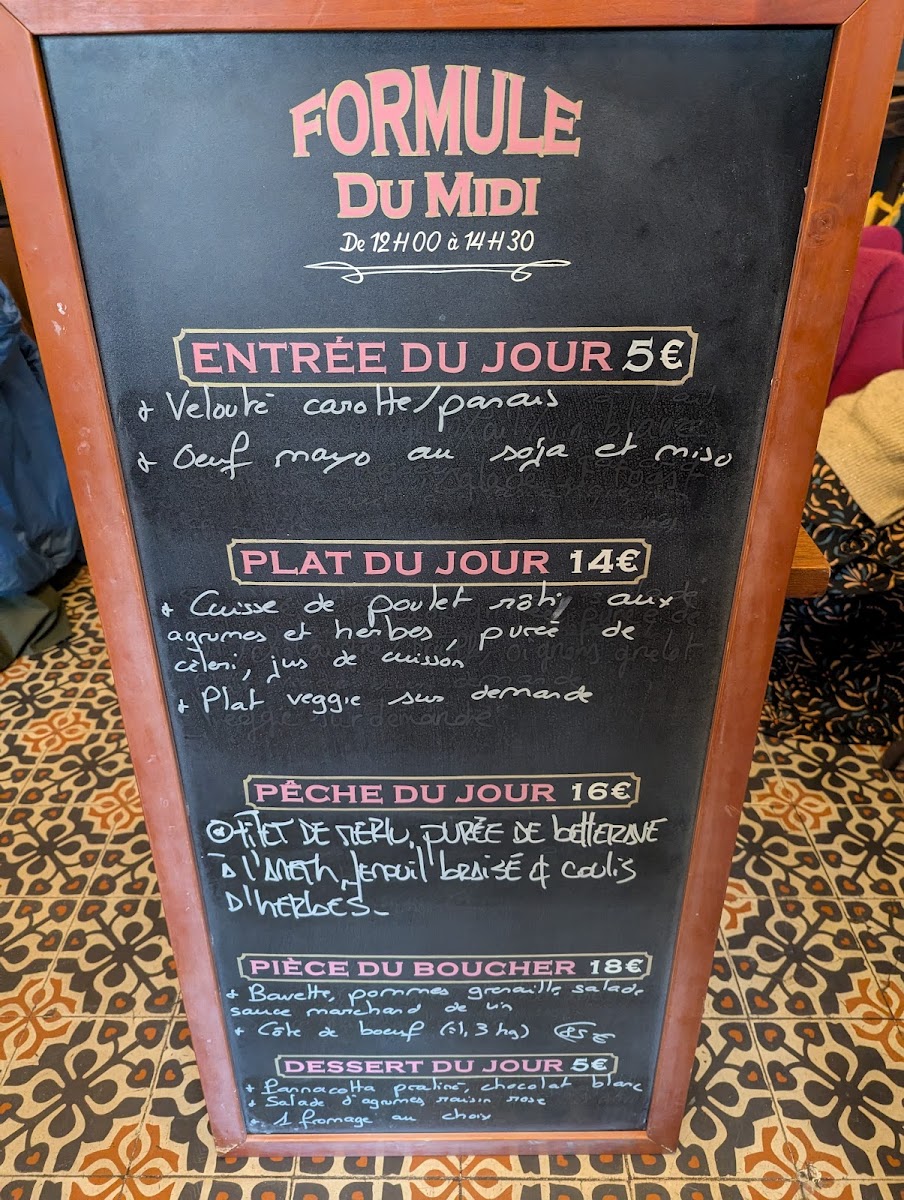 FORMULE
DU MIDI
De 12H00 à 14H30
ENTRÉE DU JOUR 5€
+ Velouté carotte/panais
+ Oeuf mayo au soja et miso
PLAT DU JOUR 14€
+ Cuisse de poulet rôti aux
agrumes et herbes, purée de
céleri, jus de cuisson
+ Plat veggie sur demande
PÊCHE DU JOUR 16€
FILET DE MERLU, PURÉE DE betteRAVE
À l'ANETH, fenouil bRAISÉ & COULIS
D'HERBES.
PIÈCE DU BOUCHER 18€
+ Bavette, pommes grenaille, salade
sauce marchand de vin
+ Côte de boeuf (1,3 kg) 85€
DESSERT DU JOUR 5€
+ Pannacotta praliné, chocolat blanc
+ Salade d'agrumes raisin rose
+ 1 fromage au choix